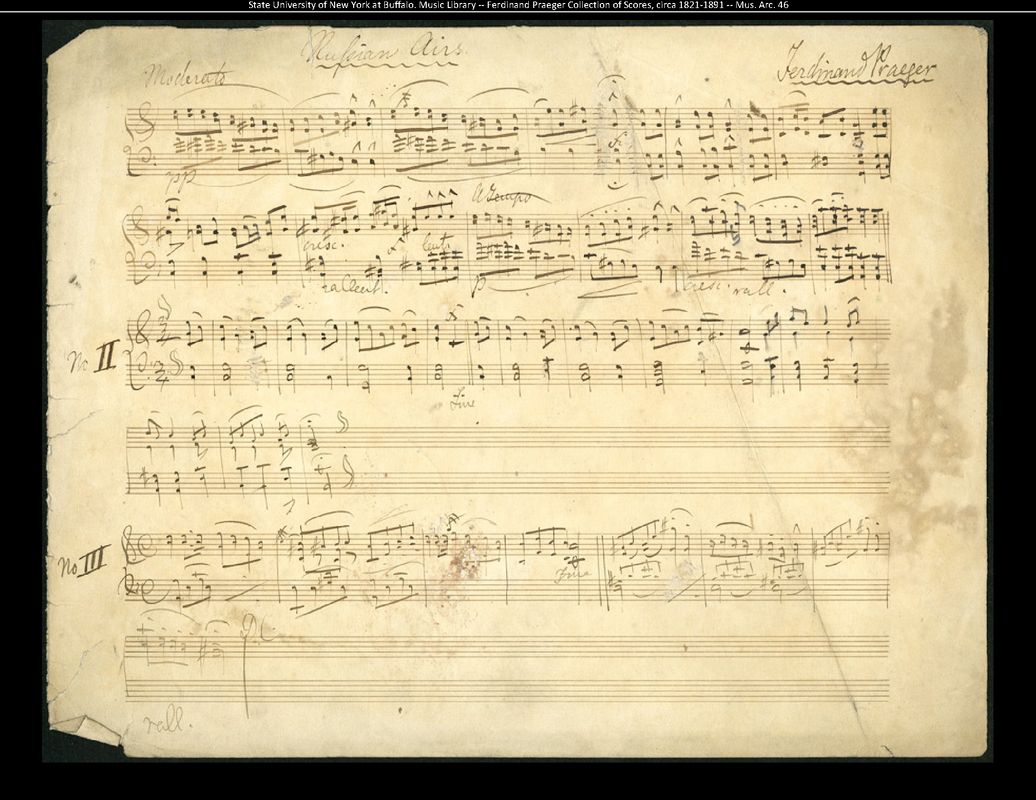 State University of New York at Buffalo. Music Library -- Ferdinand Praeger Collection of Scores, circa 1821-1891 -- Mus. Arc. 46
Russian Airs.
Moderato
Ferdinand Praeger
pp
f.
A Tempo
cresc.
lento
rallent.
p
cresc. rall.
No II
Fine
No III
Fine
D.C
rall.